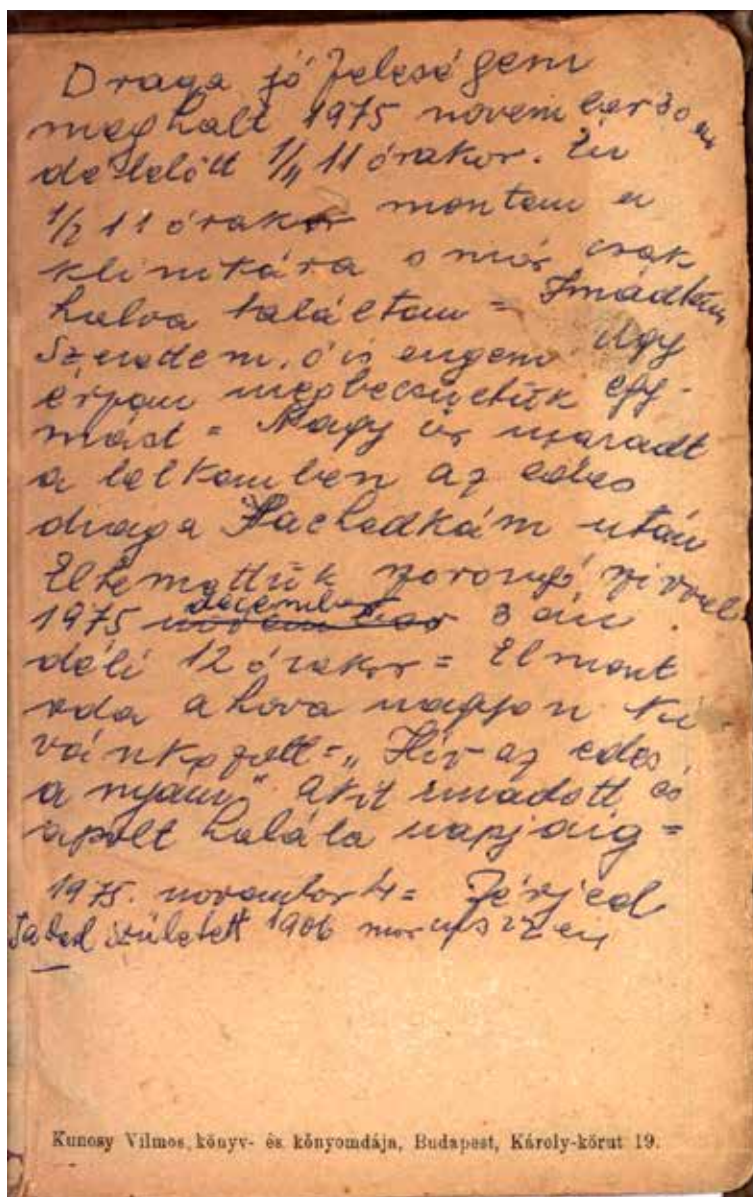 Draga jó feleségem
meghalt 1975 november 30 án
délelőtt 1/4 11 órakor. Én
1/2 11 órakor mentem a
klinikára s már csak
halva találtam = Imádtam
Szerettem, ő is engem úgy
érzem megbecsültük egy-
mást = Nagy űr maradt
a lelkemben az edes
draga Rachelkám után
Eltemettük szorongó szivvel
1975 december 3 án
déli 12 órakor = Elment
oda ahova nagyon ki
vánkozott = „Hiv az edes
a nyám" akit imadott es
apolt halála napjáig =
1975. november 4 = Férjed
született 1906 marcius 12 én
Kunosy Vilmos, könyv- és kőnyomdája, Budapest, Károly-körut 19.